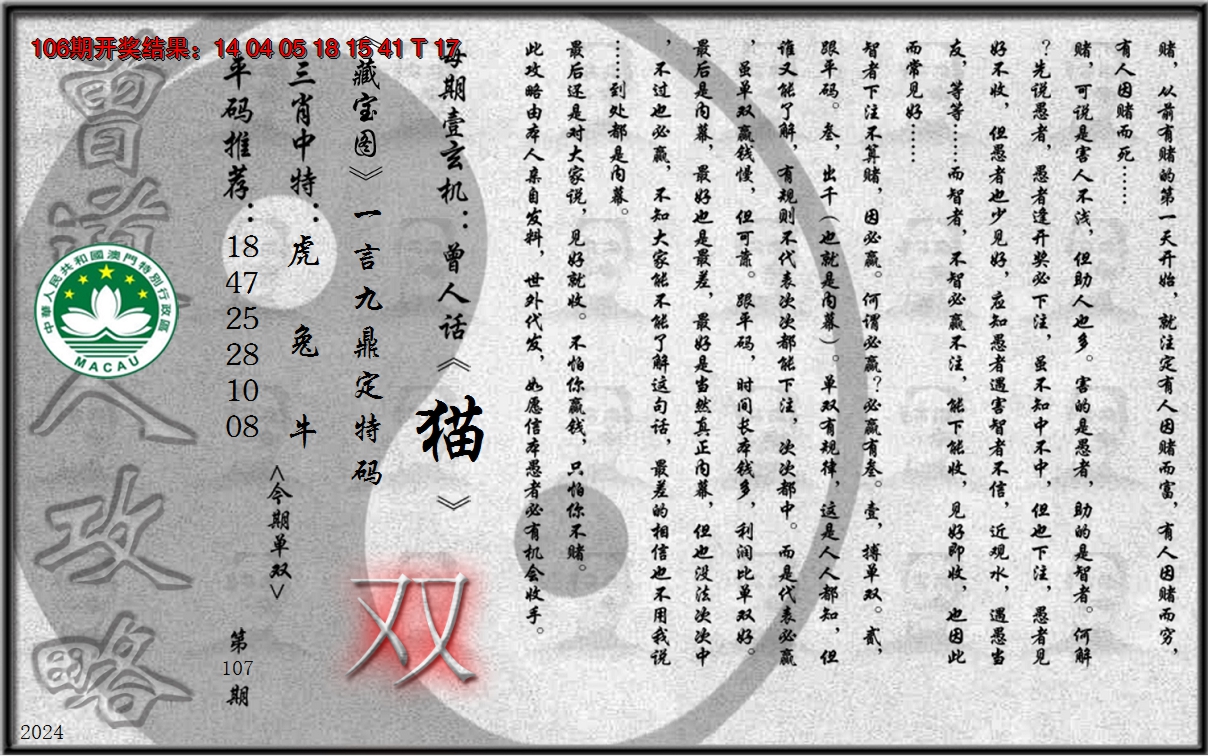 106期开奖结果：14 04 05 18 15 41 T 17
赌，从前有赌的第一天开始，就注定有人因赌而富，有人因赌而穷，
有人因赌而死……
赌，可说是害人不浅，但助人也多。害的是愚者，助的是智者。何解
？先说愚者，愚者逢开奖必下注，虽不知中不中，但也下注，愚者见
好不收，但愚者也少见好，应知愚者遇害智者不信，近观水，遇愚当
友，等等……而智者，不智必赢不注，能下能收，见好即收，也因此
而常见好……
智者下注不算赌，因必赢。何谓必赢？必赢有叁。壹，搏单双。贰，
跟平码。叁，出千（也就是内幕）。单双有规律，这是人人都知，但
谁又能了解，有规则不代表次次都能下注，次次都中。而是代表必赢
，虽单双赢钱慢，但可靠。跟平码，时间长本钱多，利润比单双好。
最后是内幕，最好也是最差，最好是当然真正内幕，但也没法次次中
，不过也必赢，不知大家能不能了解这句话，最差的相信也不用我说
……到处都是内幕。
最后还是对大家说，见好就收。不怕你赢钱，只怕你不赌。
此攻略由本人亲自发料，世外代发，如愿信本愚者必有机会收手。
每期壹玄机：曾人话《猫》
《藏宝图》一言九鼎定特码
双
三肖中特：虎 兔 牛
<今期单双>
平码推荐：18 47 25 28 10 08
第107期
曾道人攻略
中華人民共和國澳門特別行政區
MACAU
2024